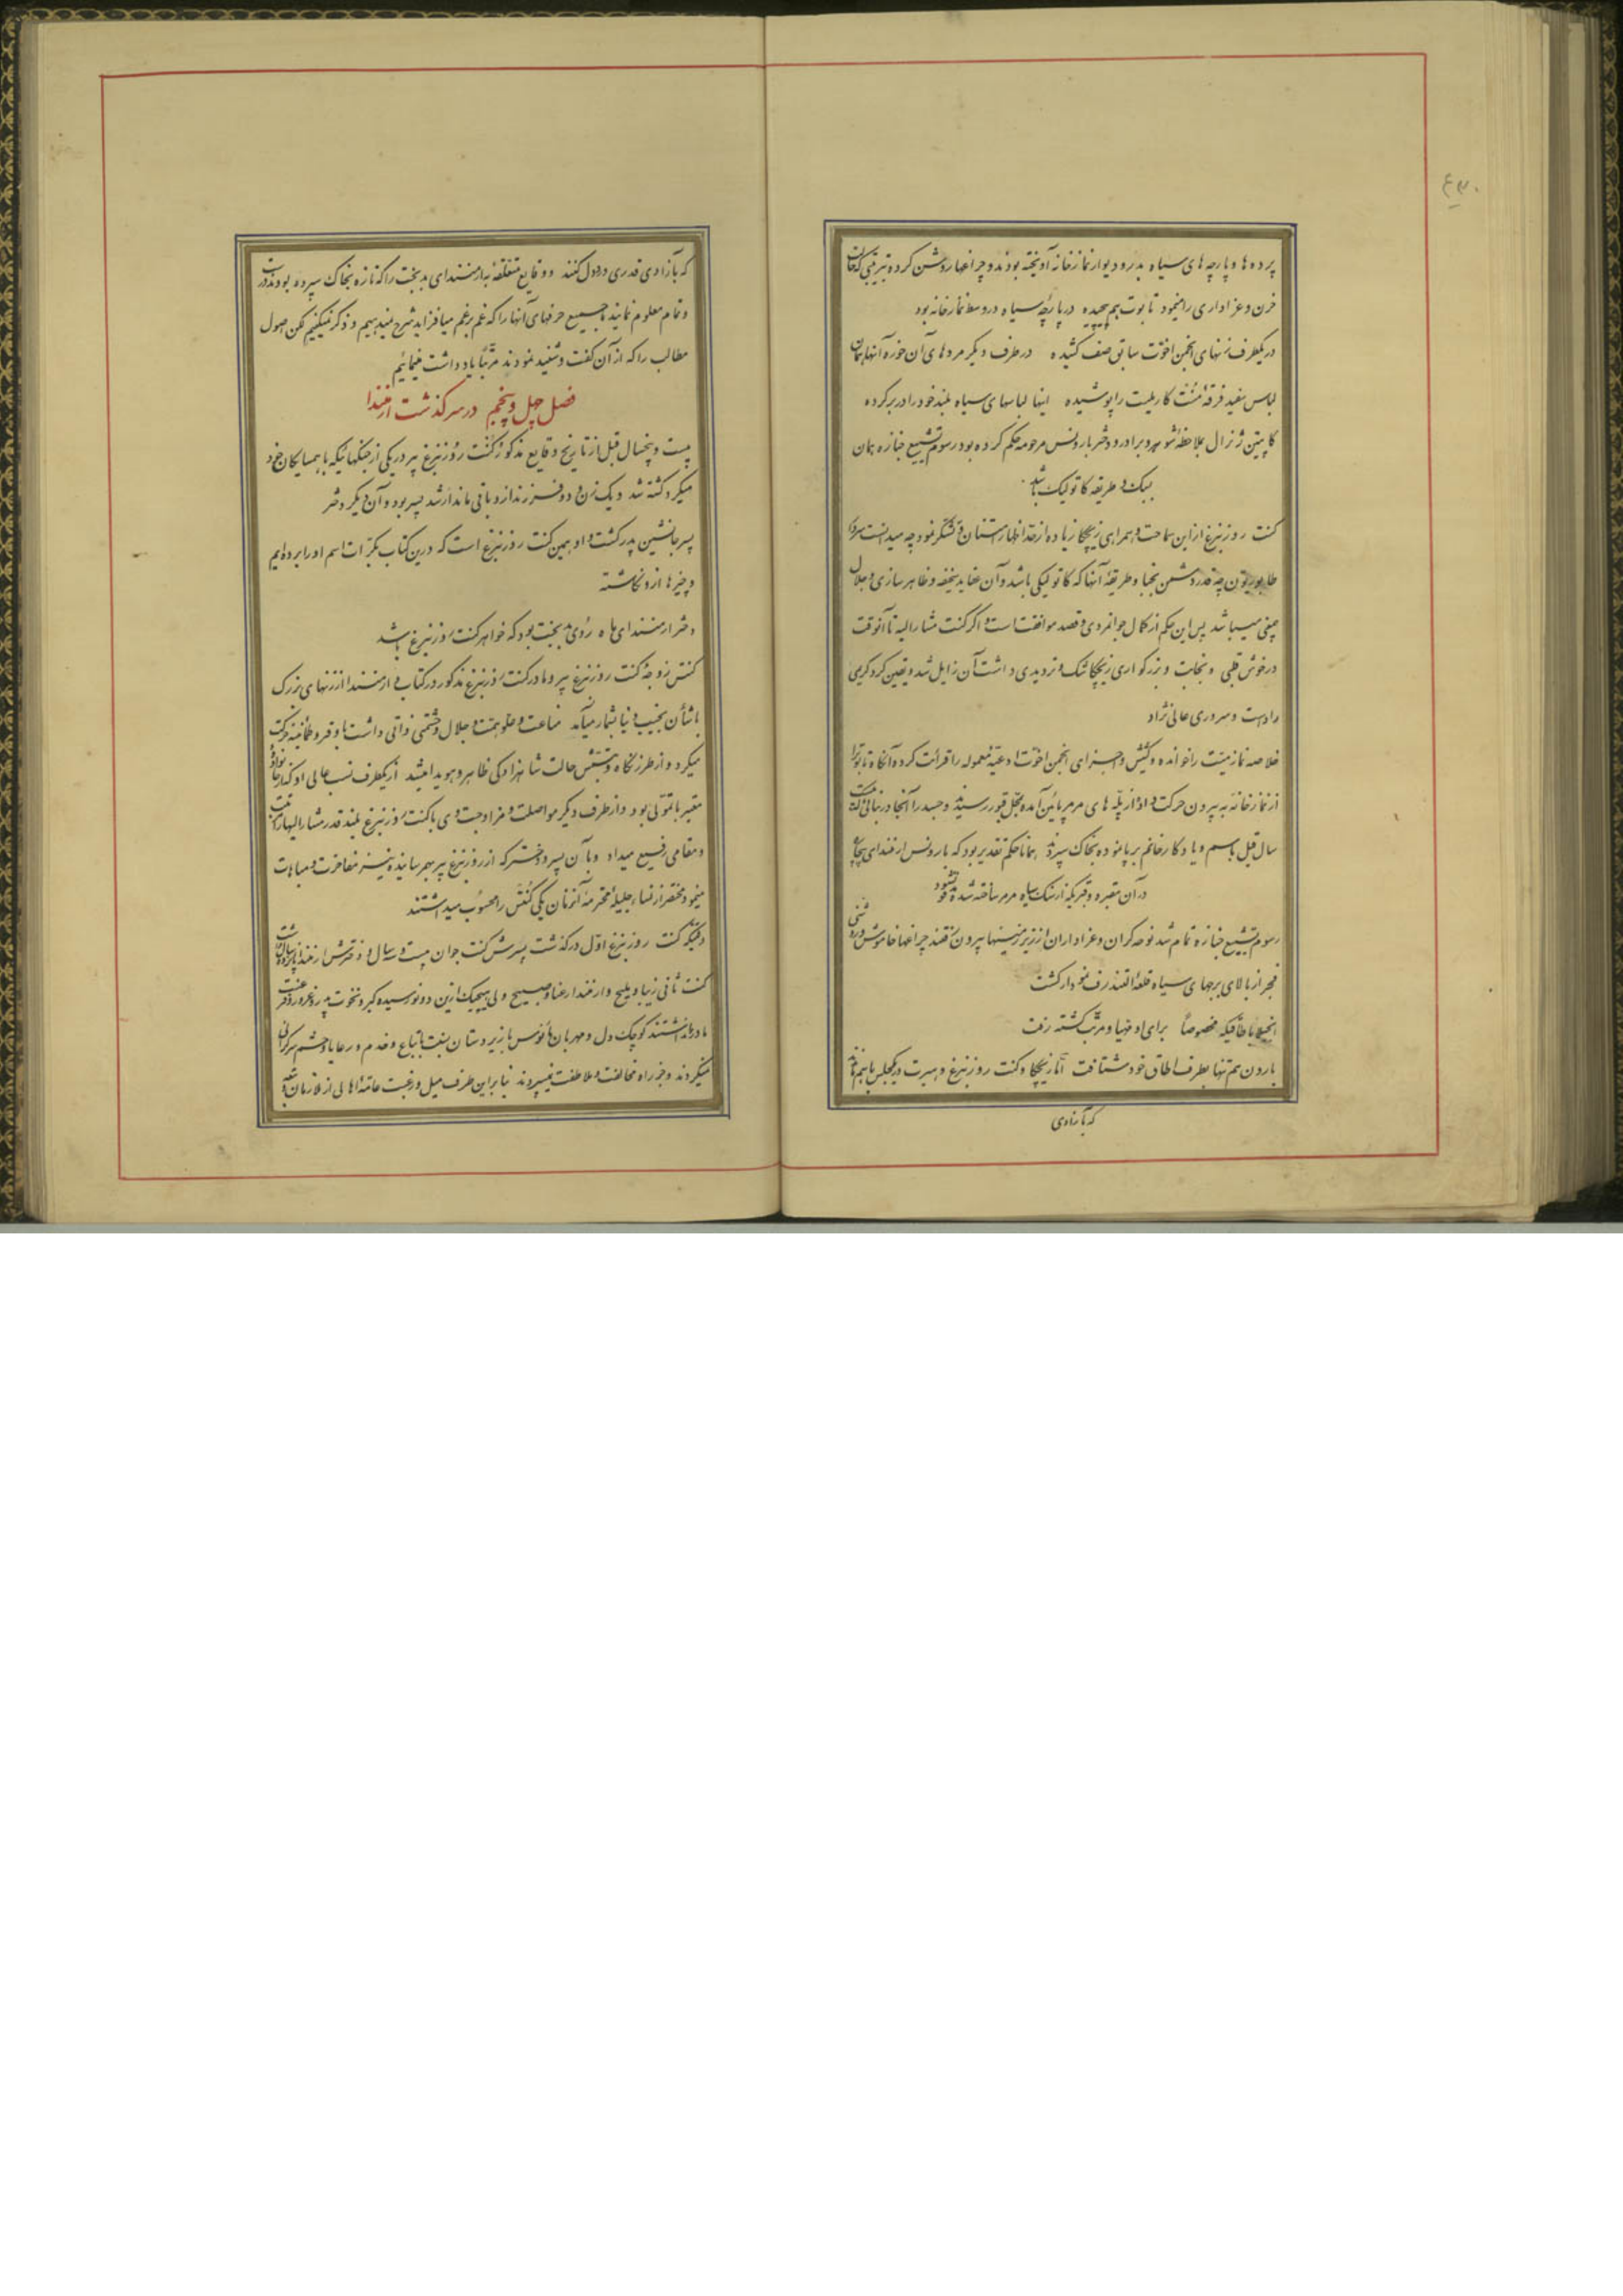 ۴۳۰
پرده ها و پارچه های سیاه بدر و دیوار نمازخانه آویخته بودند و چراغها روشن کرده بترتیبی که همان
حزن و عزاداری را مینمود تابوت هم پیچیده در پارچه سیاه در وسط نمازخانه بود
در یکطرف زنهای انجمن اخوت سابق صف کشیده در طرف دیگر مردهای آن حوزه آنها همان
لباس سفید فرقه کارملیت را پوشیده اینها لباسهای سیاه بلند خود را در بر کرده
کاپیتن ژنرال بملاحظه شوهر و برادر و دختر بارونس مرحومه حکم کرده بود رسوم تشییع جنازه همان
بسبک و طریقه کاتولیک باشد
کنت روزنبرغ از این سماحت و همراهی زیچکا زیاده از حد اظهار امتنان و تشکر نمود چه میدانست سردار
طابوریون چه قدر دشمن نجبا و طریقه آنها که کاتولیکی باشد و آن عقاید سخیفه و ظاهرسازی و جلال
میباشد پس این حکم از کمال جوانمردی و قصد موافقت است و اگر کنت مشارالیه تا آنوقت
در خوش قلبی و نجابت و بزرگواری زیچکا شک و تردیدی داشت آن زایل شد و یقین کرد کریمی
راد است و سروری عالی نژاد
خلاصه نماز میت را خوانده و کشیش و اجزای انجمن اخوت ادعیه معموله را قرائت کرده آنگاه تابوت را
از نمازخانه به بیرون حرکت داده از پله های مرمر پائین آمده بمحل قبور رسیدند و جسد را آنجا در بنائی که بیست
سال قبل باسم و یادگار خانم برپا نموده بخاک سپردند همانا حکم تقدیر بود که بارونس ارمندای بیچاره
در آن مقبره و قبریکه از سنگ سیاه مرمر ساخته شده مدفون شود
رسوم تشییع جنازه تمام شد نوحه گران و عزاداران از زیر زمینها بیرون رفتند چراغها خاموش و روشنی
فجر از بالای برجهای سیاه قلعه التندرف نمودار گشت
باطاقیکه مخصوصاً برای او مهیا و مرتب گشته رفت
بارون هم تنها بطرف اطاق خود شتافت اما زیچکا و کنت روزنبرغ و همپرت در یکمجلس با هم ماندند
که بآزادی
که بآزادی قدری درد دل کنند و وقایع متعلقه بارمندای بدبخت را که تازه بخاک سپرده بودند درست
و تمام معلوم نمایند ما جمیع حرفهای آنها را که غم بر غم میافزاید شرح نمیدهیم و ذکر نمیکنیم لکن اصول
مطالب را که از آن گفت و شنید نمودند مرتباً یادداشت مینمائیم
فصل چهل و پنجم در سرگذشت ارمندا
بیست و پنجسال قبل از تاریخ وقایع مذکور کنت روزنبرغ پیر در یکی از جنگهائیکه با همسایگان خود
میکرد کشته شد و یک زن و دو فرزند از او باقی ماند ارشد پسر بود و آن دیگر دختر
پسر جانشین پدر گشت و او همین کنت روزنبرغ است که درین کتاب بکرات اسم او را برده ایم
و چیزها ازو نگاشته
دختر ارمندای ماه روی بدبخت بود که خواهر کنت روزنبرغ باشد
کنتس زوجه کنت روزنبرغ پیر و مادر کنت روزنبرغ مذکور در کتاب و ارمندا از زنهای بزرگ
باشأن نجیب دنیا بشمار میآمد مناعت و علو همت و جلال و حشمتی ذاتی داشت با وقر و طمانینه حرکت
میکرد و از طرز نگاه و حالت شاهزادگی ظاهر و هویدا میشد از یکطرف نسب عالی او که از خانواده
معتبر با تمولی بود و از طرف دیگر مواصلت و مزاوجت وی با کنت روزنبرغ بلند قدر مشارالیها را
و مقامی رفیع میداد و بآن پسر و دختر که از روزنبرغ پیر بهم رسانیده نیز مفاخرت و مباهات
مینمود مختصر از نساء جلیله محترمه آنزمان یکی کنتس را محسوب میداشتند
وقتیکه کنت روزنبرغ اول درگذشت پسرش کنت جوان بیست و سه سال و دخترش ارمندا پانزده سال داشت
کنت ثانی زیبا و ملیح و ارمندا رعنا و صبیح ولی هیچیک ازین دو نورسیده کبر و نخوت پدر و غرور و
مادر را نداشتند کوچک دل و مهربان مأنوس با زیردستان نسبت باتباع و خدم و رعایا و حشم سرگرانی
نمیکردند و جز راه مخالفت و ملاطفت نمیسپردند بنابراین طرف میل و رغبت عامه اهالی از ملازمان و